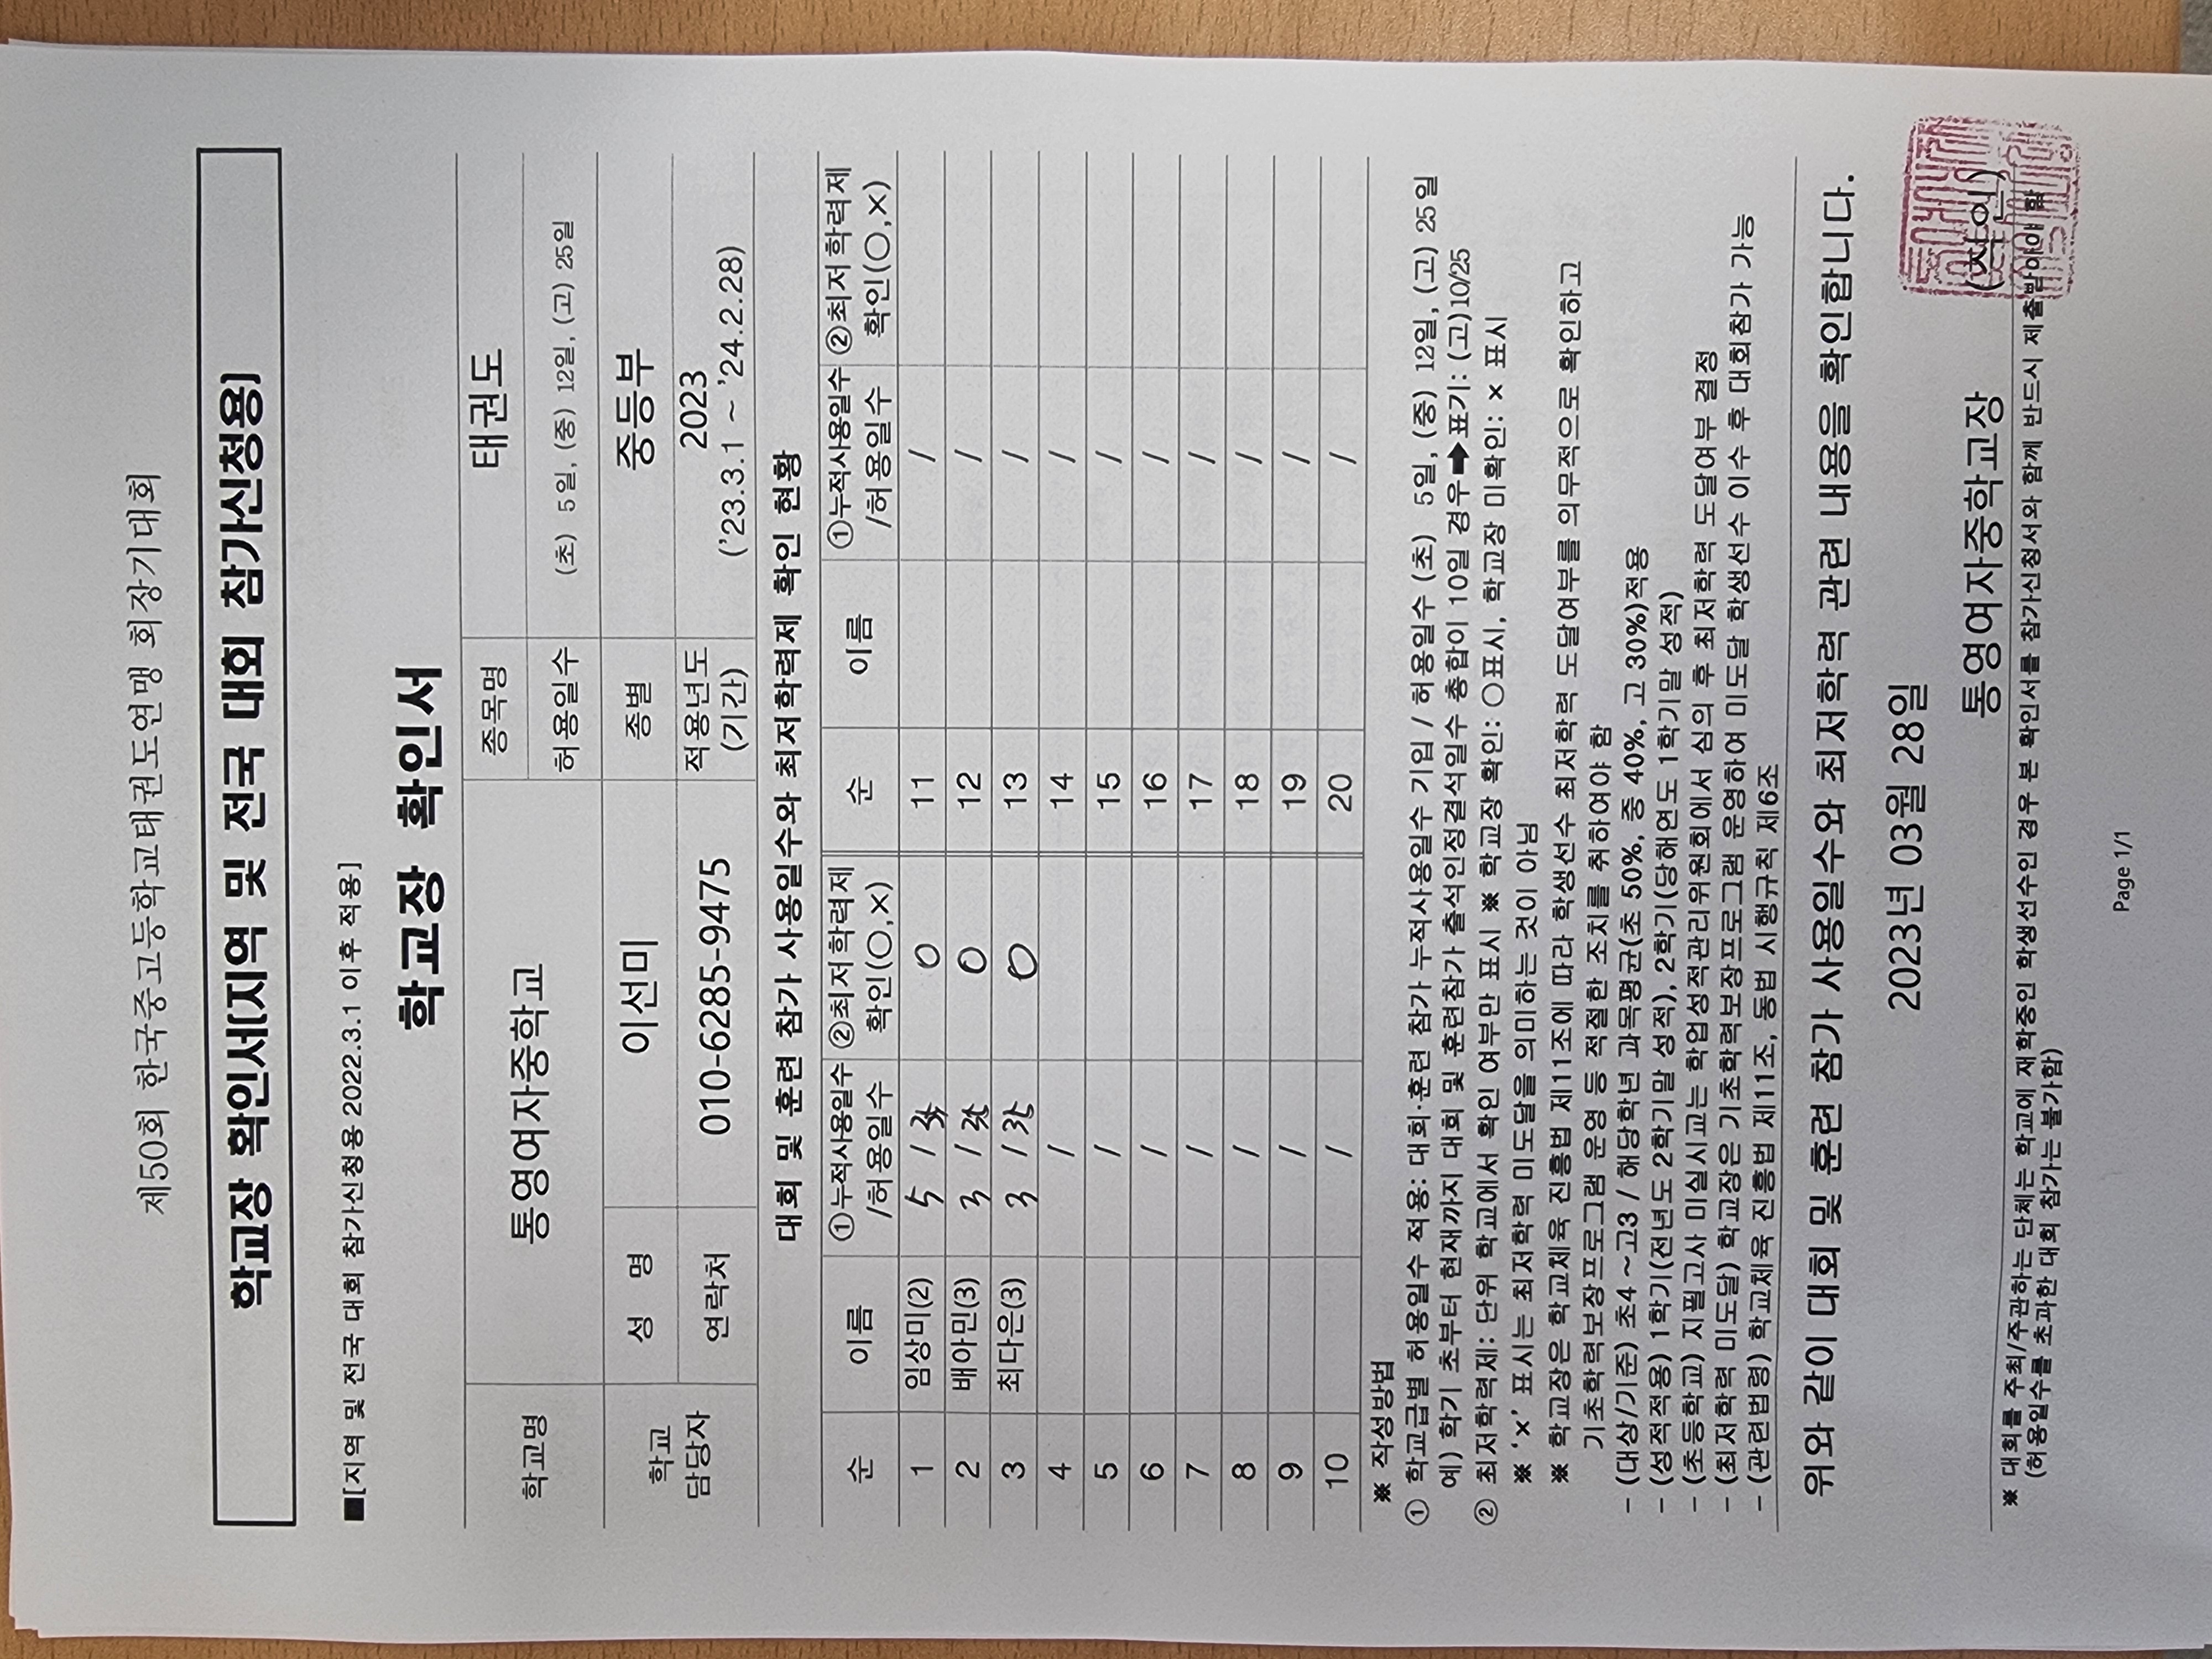 제50회 한국중고등학교태권도연맹 회장기대회
학교장 확인서(지역 및 전국 대회 참가신청용)
■[지역 및 전국 대회 참가신청용 2022.3.1 이후 적용]
학교장 확인서
학교명 통영여자중학교 종목명 태권도
허용일수 (초) 5일, (중) 12일, (고) 25일
학교 담당자 성 명 이선미 종별 중등부
연락처 010-6285-9475 적용년도 (기간) 2023 ('23.3.1 ~ '24.2.28)
대회 및 훈련 참가 사용일수와 최저학력제 확인 현황
순 이름 ①누적사용일수 /허용일수 ②최저학력제 확인(○,×) 순 이름 ①누적사용일수 /허용일수 ②최저학력제 확인(○,×)
1 임상미(2) 5 / ○ 11 /
2 배아민(3) 3 / ○ 12 /
3 최다은(3) 3 / 35 ○ 13 /
4 / 14 /
5 / 15 /
6 / 16 /
7 / 17 /
8 / 18 /
9 / 19 /
10 / 20 /
※ 작성방법
① 학교급별 허용일수 적용: 대회·훈련 참가 누적사용일수 기입 / 허용일수 (초) 5일, (중) 12일, (고) 25일
예) 학기 초부터 현재까지 대회 및 훈련참가 출석인정결석일수 총합이 10일 경우➡표기: (고)10/25
② 최저학력제: 단위 학교에서 확인 여부만 표시 ※ 학교장 확인: ○표시, 학교장 미확인: × 표시
※ '×' 표시는 최저학력 미도달을 의미하는 것이 아님
※ 학교장은 학교체육 진흥법 제11조에 따라 학생선수 최저학력 도달여부를 의무적으로 확인하고
기초학력보장프로그램 운영 등 적절한 조치를 취하여야 함
- (대상/기준) 초4 ~고3 / 해당학년 과목평균(초 50%, 중 40%, 고 30%)적용
- (성적적용) 1학기(전년도 2학기말 성적), 2학기(당해연도 1학기말 성적)
- (초등학교) 지필고사 미실시교는 학업성적관리위원회에서 심의 후 최저학력 도달여부 결정
- (최저학력 미도달) 학교장은 기초학력보장프로그램 운영하여 미도달 학생선수 이수 후 대회참가 가능
- (관련법령) 학교체육 진흥법 제11조, 동법 시행규칙 제6조
위와 같이 대회 및 훈련 참가 사용일수와 최저학력 관련 내용을 확인합니다.
2023년 03월 28일
통영여자중학교장 (직인)
※ 대회를 주최/주관하는 단체는 학교에 재학중인 학생선수인 경우 본 확인서를 참가신청서와 함께 반드시 제출받아야 함
(허용일수를 초과한 대회 참가는 불가함)
Page 1/1